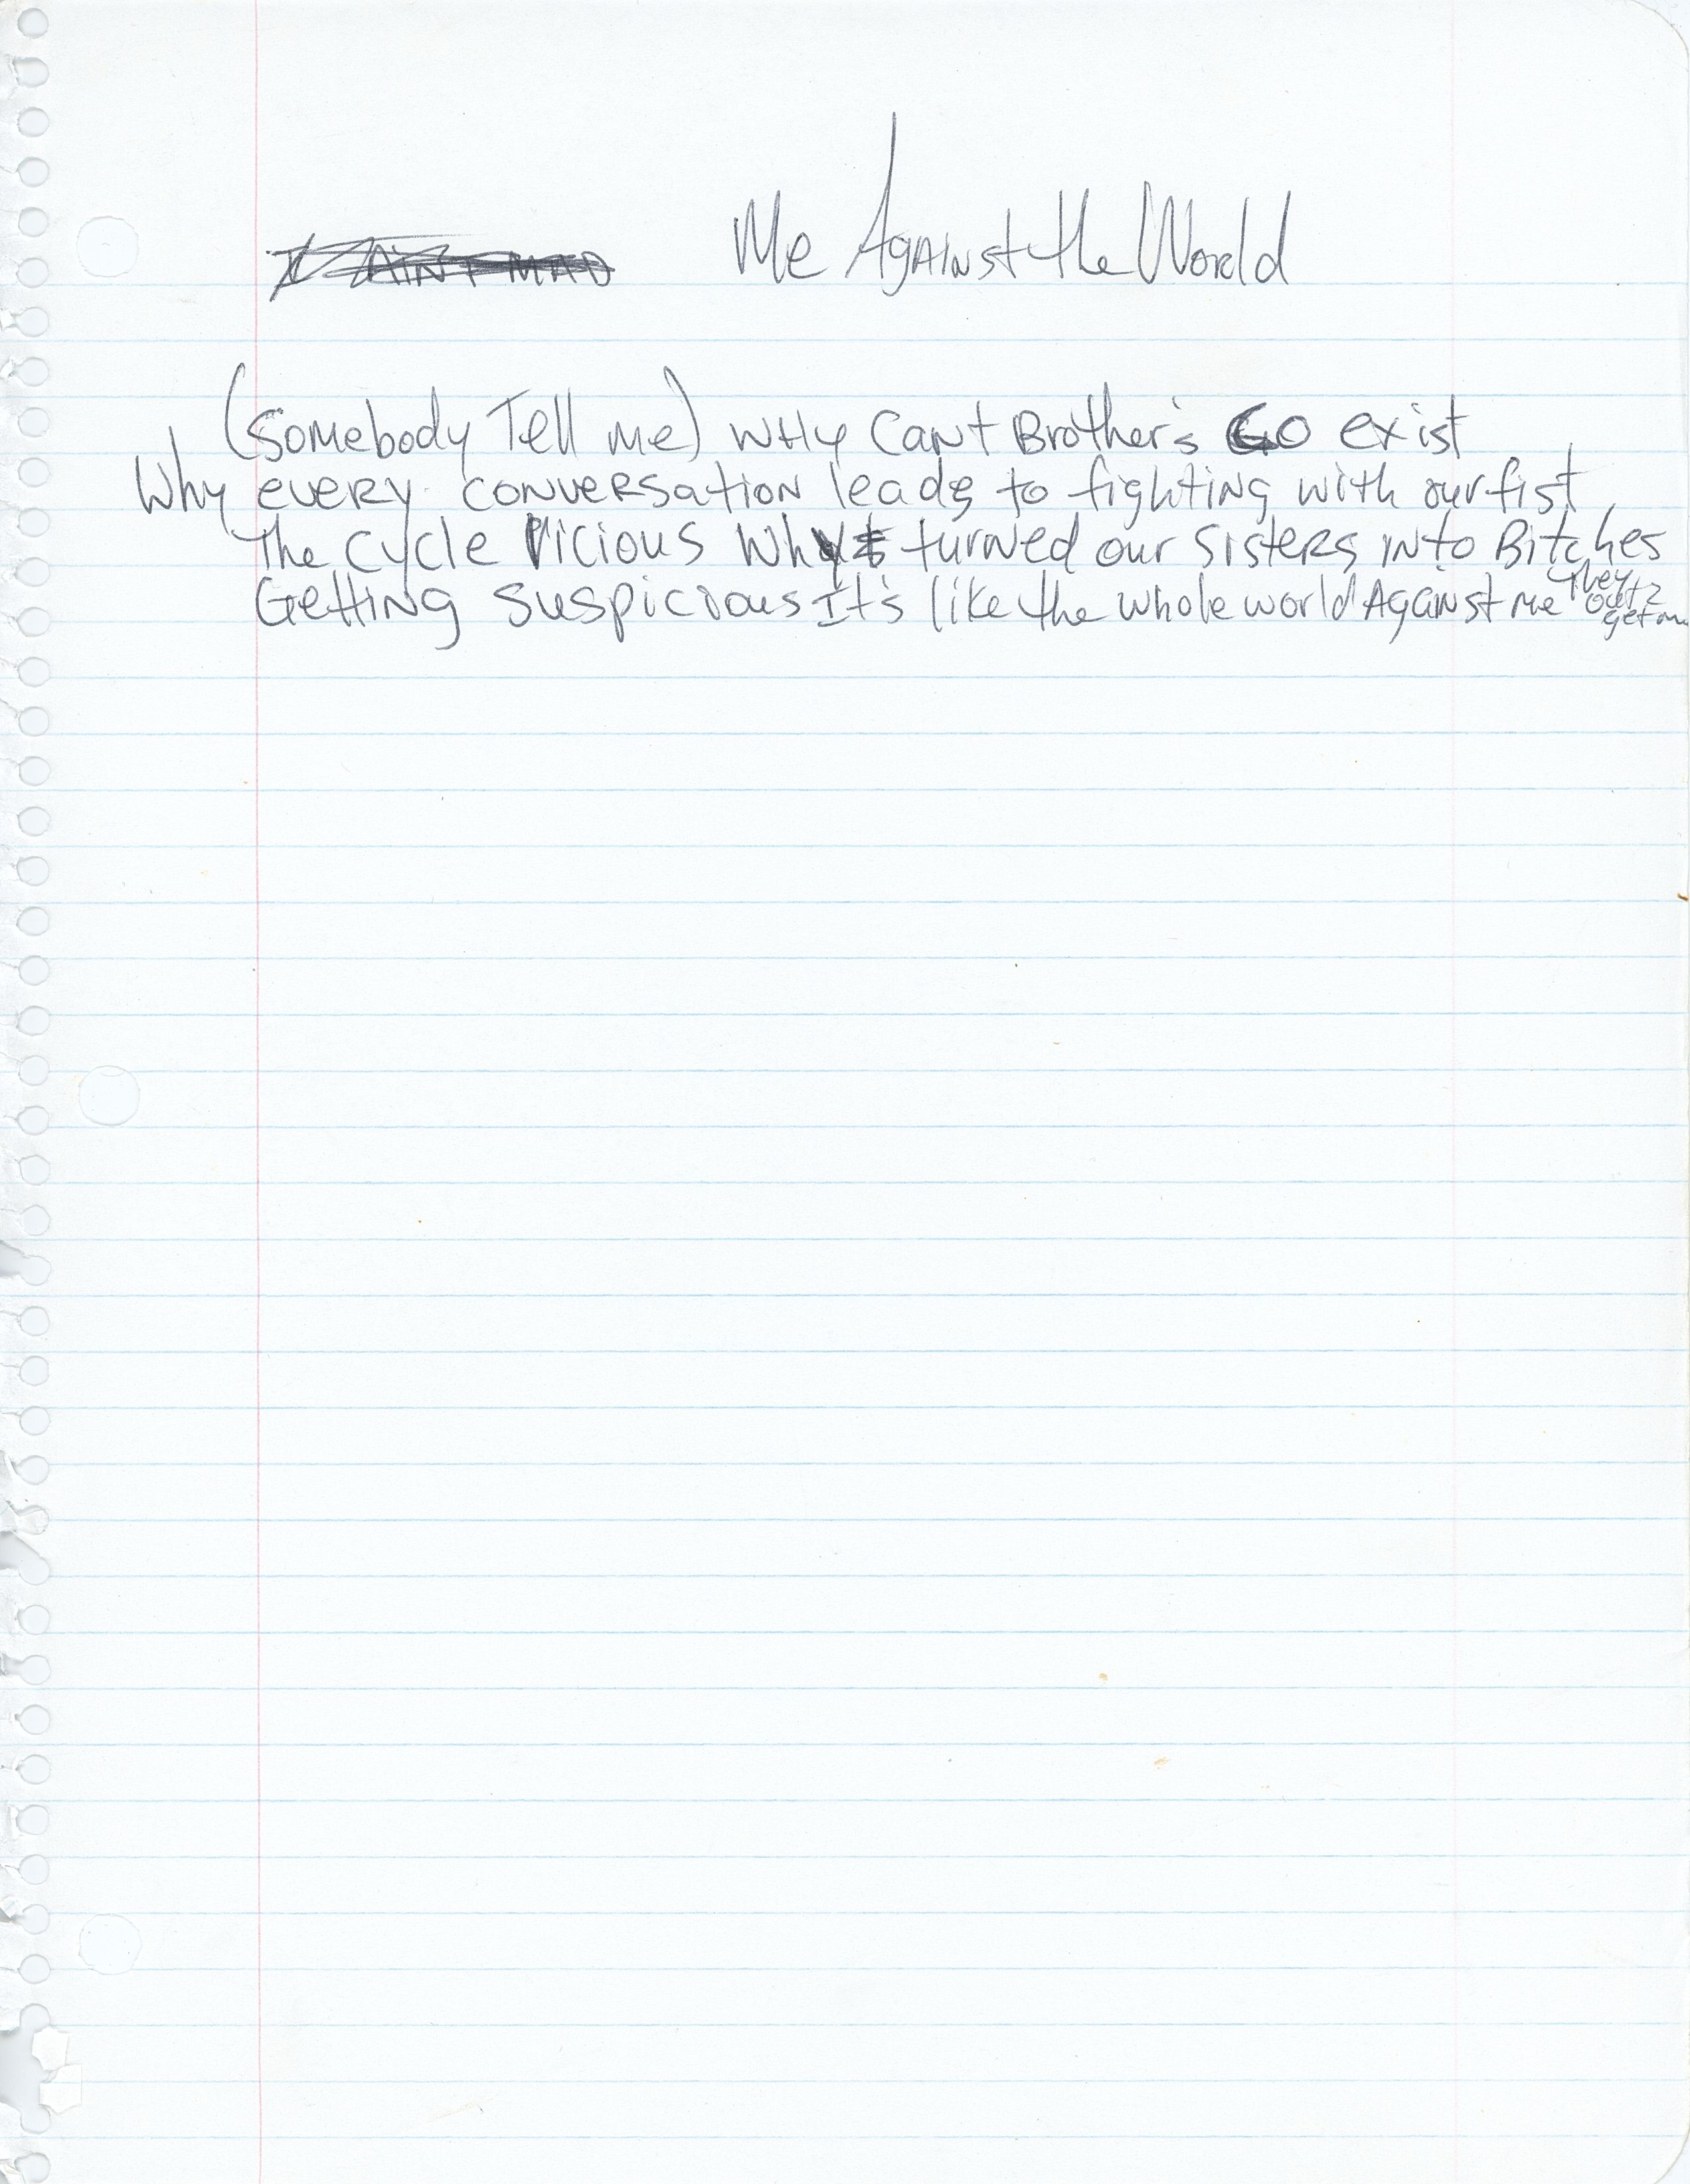 I AIN'T MAD Me Against the World
(Somebody Tell me) WHy Can't Brother's CO exist
Why every conversation leads to fighting with our fist
The Cycle Vicious Why turned our Sisters into Bitches
Getting Suspicious It's like the whole world Against me They
out 2
get me